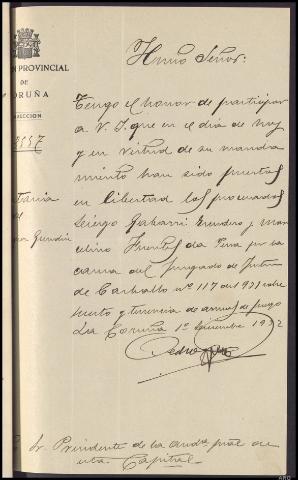 N PROVINCIAL
DE
ORUÑA
RECCION
Ilmo Señor:
Tengo el honor de participar
a V. I. que en el dia de hoy
y en virtud de su manda
miento han sido puestos
en libertad los procesados
Sergio Gabarri y Mar
celino da por la
causa del Juzgado de
de Carballo nº 117 del 931 sobre
hurto y tenencia de armas de fuego
La Coruña 1º 1932
Pedro
Sr. Presidente de la Audª de
esta Capital.